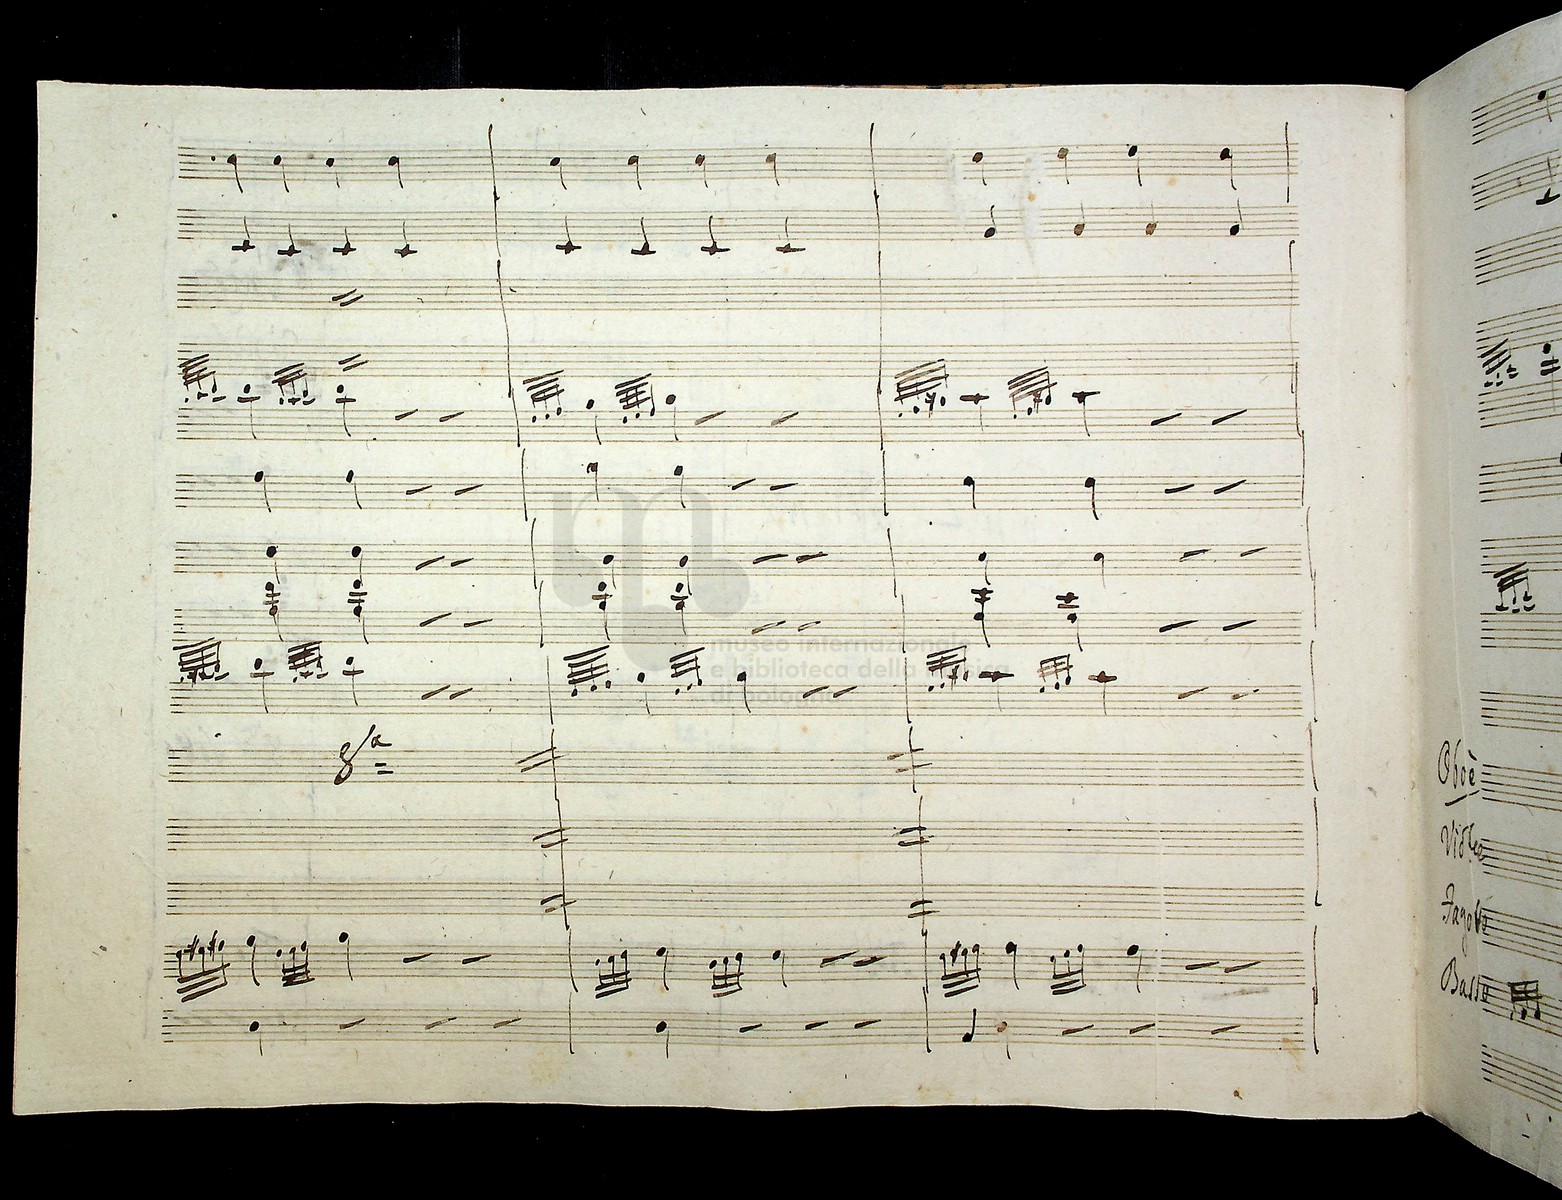 museo internazionale
e biblioteca della musica
di bologna
8ª
Oboè
Viole
Fagotto
Basso